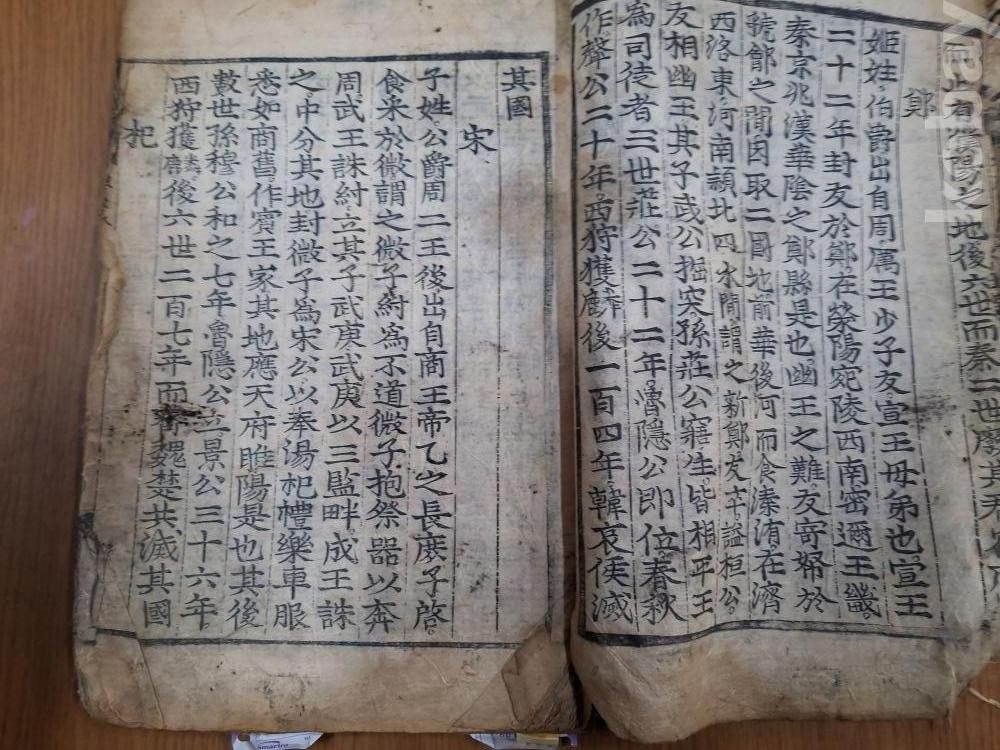 而止有濮陽之地後六世而秦二世廢其君
鄭
姬姓伯爵出自周厲王少子友宣王母弟也宣王
二十二年封友於鄭在滎陽宛陵西南密邇王畿
秦京兆漢華陰之鄭縣是也幽王之難友寄帑於
虢鄶之間因取二國地前華後河而食溱洧在濟
西洛東河南潁北四水間謂之新鄭友卒謚桓公
友相幽王其子武公掘突孫莊公寤生皆相平王
爲司徒者三世莊公二十二年魯隱公即位春秋
作聲公二十年西狩獲麟後一百四年韓哀侯滅
其國
宋
子姓公爵周二王後出自商王帝乙之長庶子啓
食采於微謂之微子紂爲不道微子抱祭器以奔
周武王誅紂立其子武庚武庚以三監畔成王誅
之中分其地封微子爲宋公以奉湯祀禮樂車服
悉如商舊作賓王家其地應天府睢陽是也其後
數世孫穆公和之七年魯隱公立景公三十六年
西狩獲後六世二百七年而齊魏楚共滅其國
杞